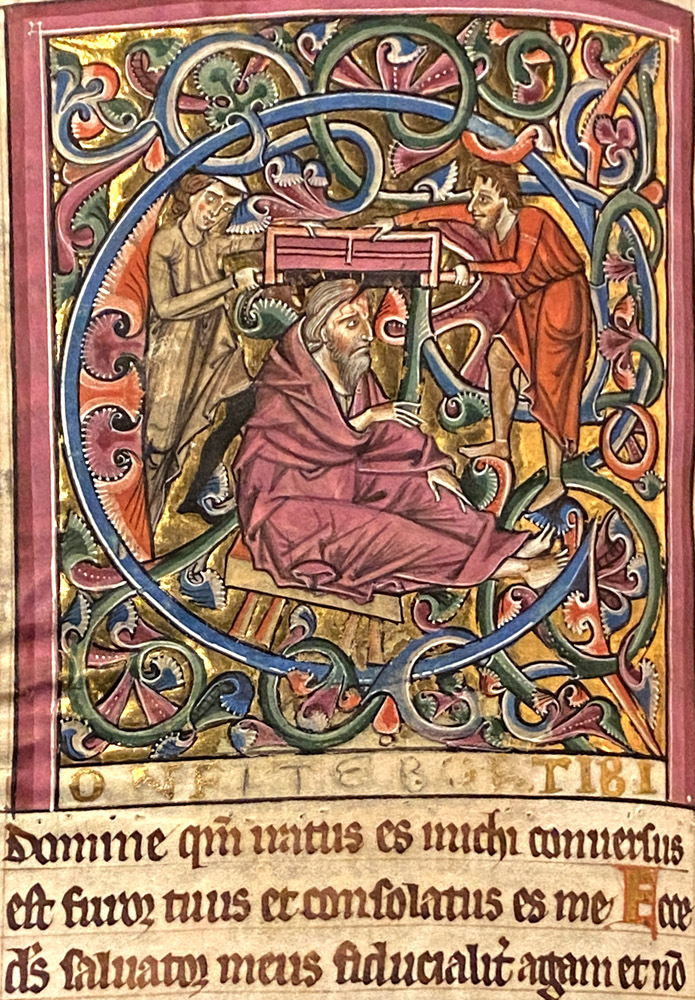 CONFITEBOR TIBI
Domine qm̄ iratus es michi conuersus
est furor tuus et consolatus es me Ecce
ds̄ saluator meus fiducialit̄ agam et nō